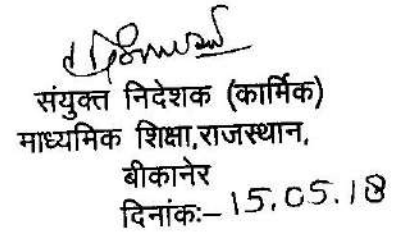 संयुक्त निदेशक (कार्मिक)
माध्यमिक शिक्षा,राजस्थान,
बीकानेर
दिनांकः– 15.05.18